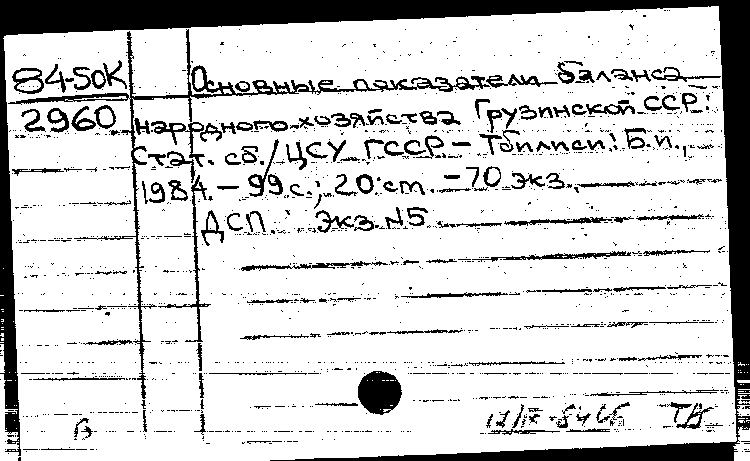 84-50К
2960
Основные показатели баланса
народного хозяйства Грузинской ССР:
Стат. сб./ЦСУ ГССР – Тбилиси: Б.и.,
1984. – 99 с.; 20 см. – 70 экз.,
ДСП. Экз. N5
В